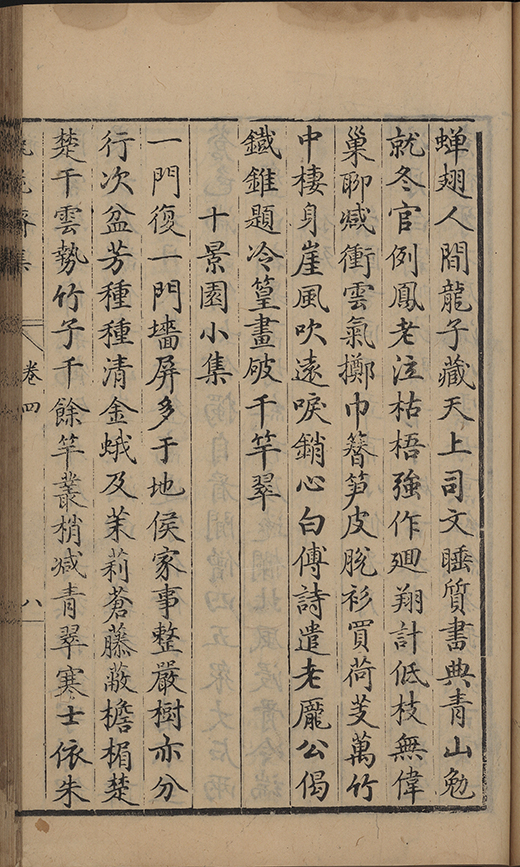 蟬翅人間龍子藏天上司文睡質書典青山勉
就冬官例鳳老泣枯梧強作廻翔計低枝無偉
巢聊減衝雲氣擲巾簪笋皮脫衫買荷芰萬竹
中棲身崖風吹遠唳銷心白傅詩遣老龐公偈
鐵錐題冷篁畫破千竿翠
十景園小集
一門復一門墻屏多于地侯家事整嚴樹亦分
行次盆芳種種清金蛾及茉莉蒼藤蔽檐楣楚
楚干雲勢竹子千餘竿叢梢減青翠寒士依朱
集
卷四
八